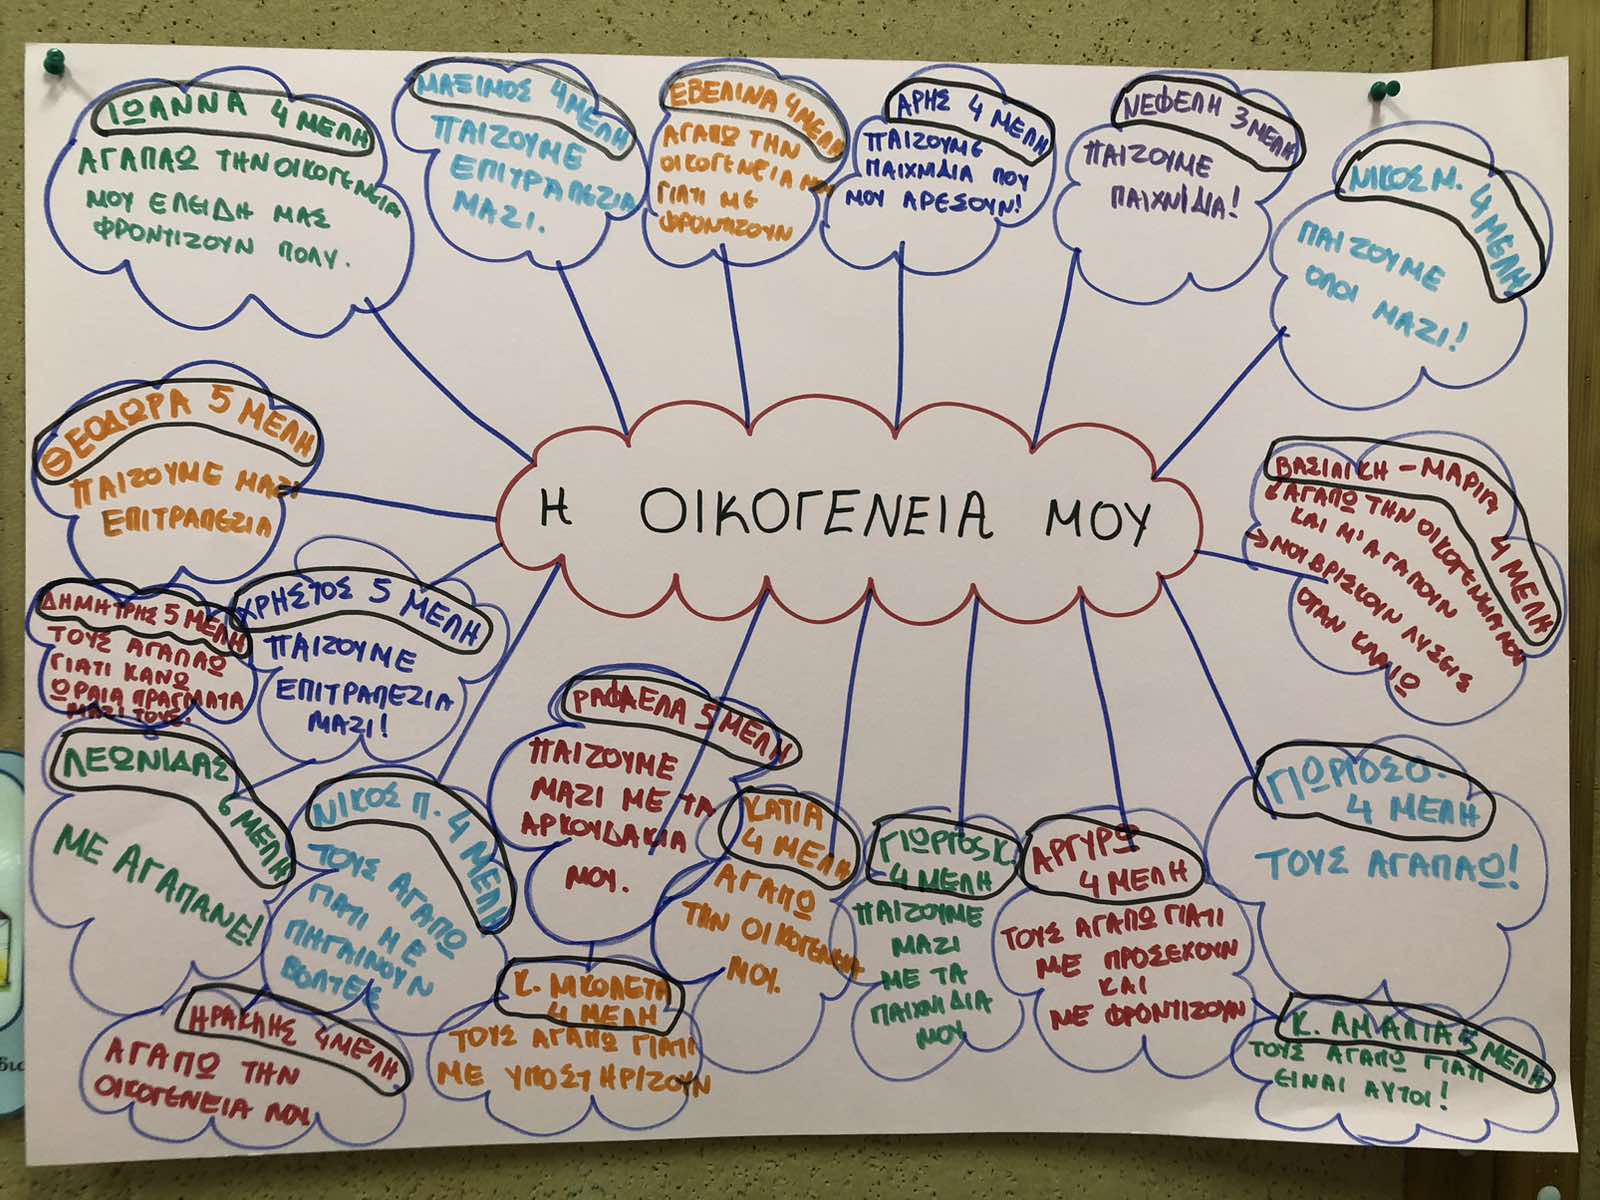 ΙΩΑΝΝΑ 4 ΜΕΛΗ
ΑΓΑΠΑΩ ΤΗΝ ΟΙΚΟΓΕΝΕΙΑ
ΜΟΥ ΕΠΕΙΔΗ ΜΑΣ
ΦΡΟΝΤΙΖΟΥΝ ΠΟΛΥ.
ΜΑΞΙΜΟΣ 4 ΜΕΛΗ
ΠΑΙΖΟΥΜΕ
ΕΠΙΤΡΑΠΕΖΙΑ
ΜΑΖΙ.
ΕΒΕΛΙΝΑ 4 ΜΕΛΗ
ΑΓΑΠΩ ΤΗΝ
ΟΙΚΟΓΕΝΕΙΑ ΜΟΥ
ΓΙΑΤΙ ΜΕ
ΦΡΟΝΤΙΖΟΥΝ
ΑΡΗΣ 4 ΜΕΛΗ
ΠΑΙΖΟΥΜΕ
ΠΑΙΧΝΙΔΙΑ ΠΟΥ
ΜΟΥ ΑΡΕΣΟΥΝ!
ΝΕΦΕΛΗ 3 ΜΕΛΗ
ΠΑΙΖΟΥΜΕ
ΠΑΙΧΝΙΔΙΑ!
ΝΙΚΟΣ Μ. 4 ΜΕΛΗ
ΠΑΙΖΟΥΜΕ
ΟΛΟΙ ΜΑΖΙ!
ΘΕΟΔΩΡΑ 5 ΜΕΛΗ
ΠΑΙΖΟΥΜΕ ΜΑΖΙ
ΕΠΙΤΡΑΠΕΖΙΑ
Η ΟΙΚΟΓΕΝΕΙΑ ΜΟΥ
ΒΑΣΙΛΙΚΗ - ΜΑΡΙΑ 4 ΜΕΛΗ
ΑΓΑΠΩ ΤΗΝ ΟΙΚΟΓΕΝΕΙΑ ΜΟΥ
ΚΑΙ Μ'ΑΓΑΠΟΥΝ
→ ΜΟΥ ΒΡΙΣΚΟΥΝ ΛΥΣΕΙΣ
ΟΤΑΝ ΚΛΑΙΩ
ΔΗΜΗΤΡΗΣ 5 ΜΕΛΗ
ΤΟΥΣ ΑΓΑΠΑΩ
ΓΙΑΤΙ ΚΑΝΩ
ΩΡΑΙΑ ΠΡΑΓΜΑΤΑ
ΜΑΖΙ ΤΟΥΣ.
ΧΡΗΣΤΟΣ 5 ΜΕΛΗ
ΠΑΙΖΟΥΜΕ
ΕΠΙΤΡΑΠΕΖΙΑ
ΜΑΖΙ!
ΛΕΩΝΙΔΑΣ 6 ΜΕΛΗ
ΜΕ ΑΓΑΠΑΝΕ!
ΝΙΚΟΣ Π. 4 ΜΕΛΗ
ΤΟΥΣ ΑΓΑΠΩ
ΓΙΑΤΙ ΜΕ
ΠΗΓΑΙΝΟΥΝ
ΒΟΛΤΕΣ
ΡΑΦΑΕΛΑ 5 ΜΕΛΗ
ΠΑΙΖΟΥΜΕ
ΜΑΖΙ ΜΕ ΤΑ
ΑΡΚΟΥΔΑΚΙΑ
ΜΟΥ.
ΚΑΤΙΑ
4 ΜΕΛΗ
ΑΓΑΠΩ
ΤΗΝ ΟΙΚΟΓΕΝΕΙΑ
ΜΟΥ.
ΓΙΩΡΓΟΣ Κ.
4 ΜΕΛΗ
ΠΑΙΖΟΥΜΕ
ΜΑΖΙ
ΜΕ ΤΑ
ΠΑΙΧΝΙΔΙΑ
ΜΟΥ
ΑΡΓΥΡΩ
4 ΜΕΛΗ
ΤΟΥΣ ΑΓΑΠΩ ΓΙΑΤΙ
ΜΕ ΠΡΟΣΕΧΟΥΝ
ΚΑΙ
ΜΕ ΦΡΟΝΤΙΖΟΥΝ
ΓΙΩΡΓΟΣ Ο.
4 ΜΕΛΗ
ΤΟΥΣ ΑΓΑΠΑΩ!
ΗΡΑΚΛΗΣ 4 ΜΕΛΗ
ΑΓΑΠΩ ΤΗΝ
ΟΙΚΟΓΕΝΕΙΑ ΜΟΥ
Κ. ΝΙΚΟΛΕΤΑ
4 ΜΕΛΗ
ΤΟΥΣ ΑΓΑΠΩ ΓΙΑΤΙ
ΜΕ ΥΠΟΣΤΗΡΙΖΟΥΝ
Κ. ΑΜΑΛΙΑ 5 ΜΕΛΗ
ΤΟΥΣ ΑΓΑΠΩ ΓΙΑΤΙ
ΕΙΝΑΙ ΑΥΤΟΙ!